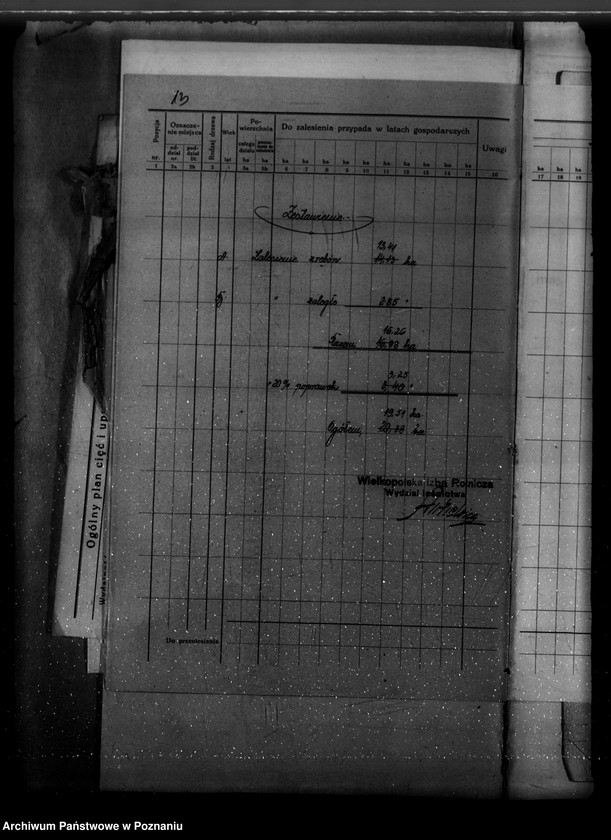 13
Pozycja
Oznaczenie miejsca
Rodzaj drzewa
Wiek
Powierzchnia
Do zalesienia przypada w latach gospodarczych
Uwagi
nr. oddział nr. pododdział lit. lat całego działu ha ha ha ha ha ha ha ha ha ha ha ha ha ha ha
1 2a 2b 3 5a 5b 6 7 8 9 10 11 12 13 14 15 16 17 18 19
Zestawienie
13,41
Zalesienie zrębów 14.13 ha
" zaległe 2.85 "
16.26
Razem 16.98 ha
3.25
20% poprawek 3.40 "
19.51 ha
Ogółem 20.38 ha
Wielkopolska Izba Rolnicza
Wydział leśnictwa
Do przeniesienia
Ogólny plan cięć i up
Archiwum Państwowe w Poznaniu